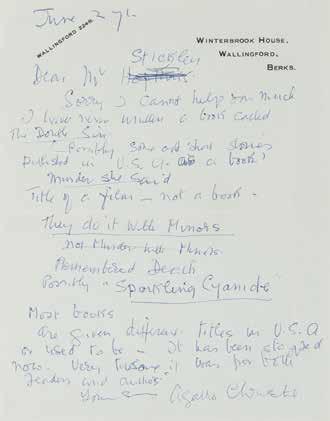 June 27th
WALLINGFORD 2248.
WINTERBROOK HOUSE,
WALLINGFORD,
BERKS.
Stickley
Dear Mr
Sorry I cannot help you much
I have never written a book called
The Double Sin
Possibly some odd short stories
Published in U.S.A. as a book?
Murder she said
Title of a film – not a book –
They do it with Mirrors
not Murder with Mirrors
Remembered Death
Possibly "Sparkling Cyanide"
Most books
are given different titles in U.S.A
or used to be – it has been stopped
now. Very tiresome it was for both
readers and author.
Yours
Agatha Christie